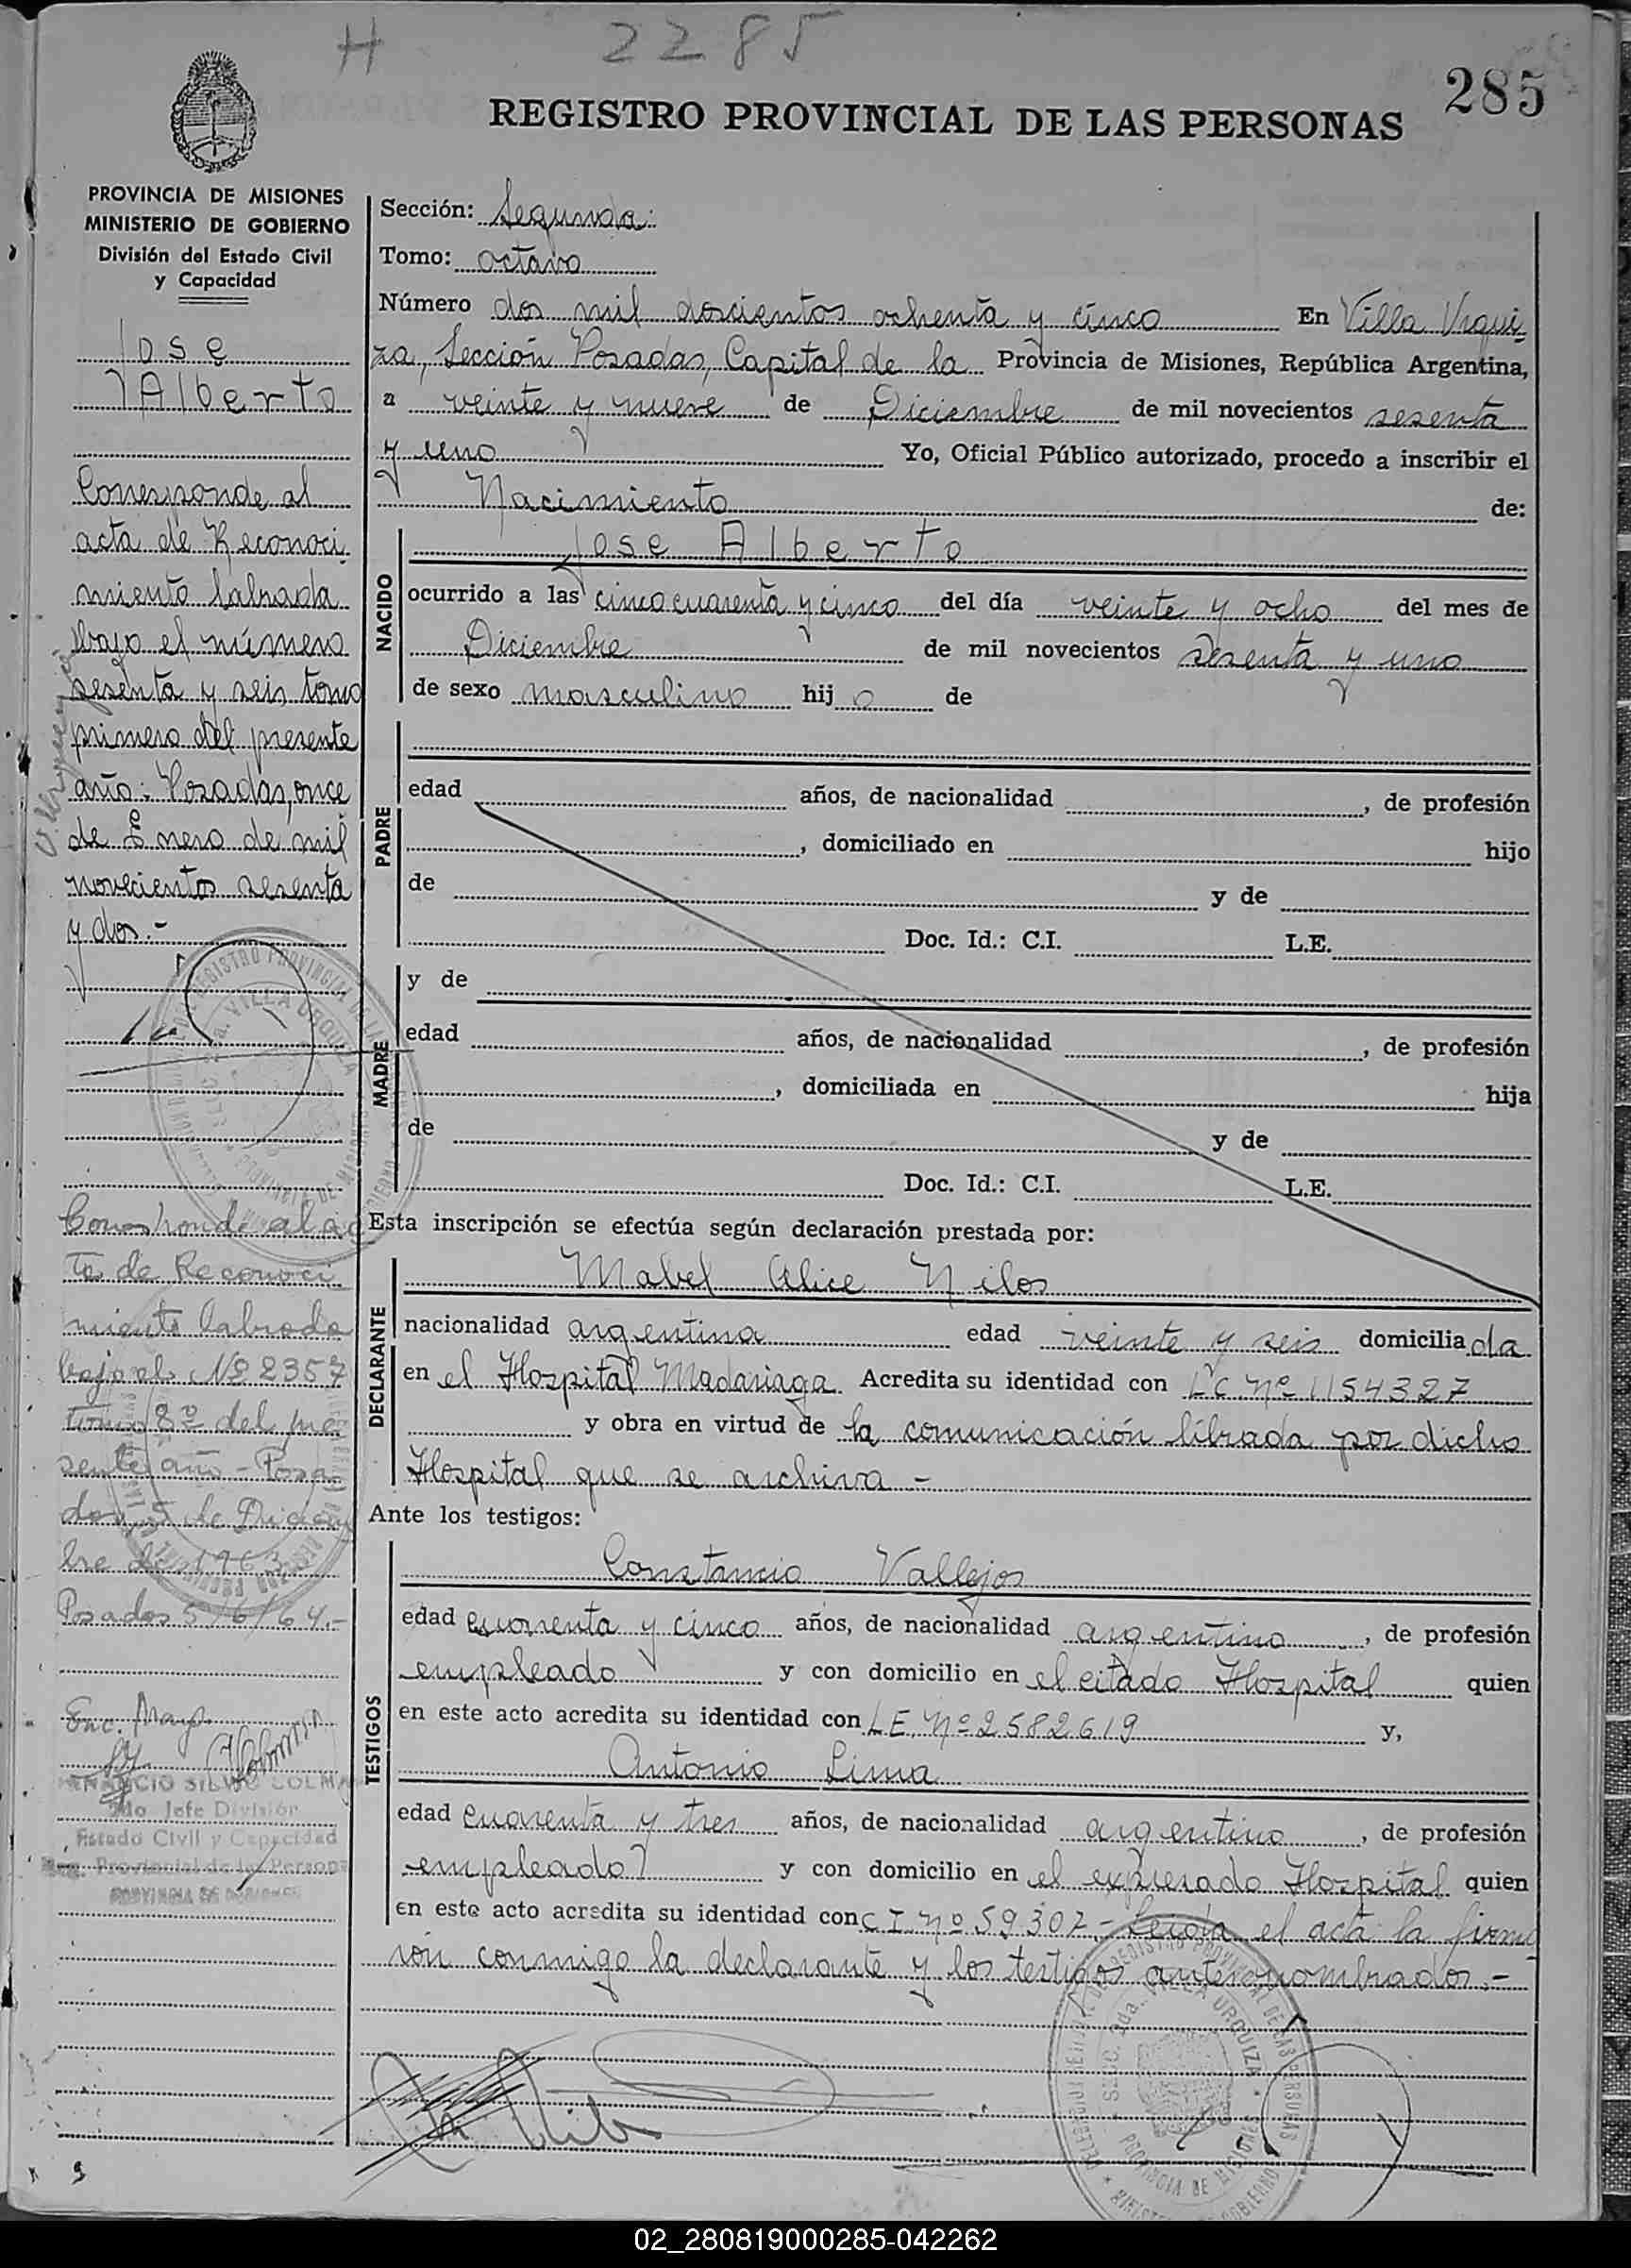 H 2285
285
REGISTRO PROVINCIAL DE LAS PERSONAS
PROVINCIA DE MISIONES
MINISTERIO DE GOBIERNO
División del Estado Civil
y Capacidad
Jose
Alberto
Corresponde al
acta de Reconoci
miento labrada
bajo el número
sesenta y seis, tomo
primero del presente
año. Posadas, once
de Enero de mil
novecientos sesenta
y dos.-
Corresponde al ac
ta de Reconoci
miento labrada
bajo el Nº 2357
tomo 8º del pre
sente año - Posa
das, 5 de Diciem
bre de 1963
Posadas 5/6/64.-
SILVIO COLMA
2do Jefe División
Estado Civil y Capacidad
Reg. Provincial de las Personas
PROVINCIA DE MISIONES
Sección: Segunda.
Tomo: octavo
Número dos mil doscientos ochenta y cinco En Villa Urqui
za, Sección Posadas, Capital de la Provincia de Misiones, República Argentina,
a veinte y nueve de Diciembre de mil novecientos sesenta
y uno Yo, Oficial Público autorizado, procedo a inscribir el
Nacimiento de:
NACIDO
Jose Alberto
ocurrido a las cinco cuarenta y cinco del día veinte y ocho del mes de
Diciembre de mil novecientos sesenta y uno
de sexo masculino hijo de
PADRE
edad años, de nacionalidad , de profesión
, domiciliado en hijo
de y de
Doc. Id.: C.I. L.E.
MADRE
y de
edad años, de nacionalidad , de profesión
, domiciliada en hija
de y de
Doc. Id.: C.I. L.E.
Esta inscripción se efectúa según declaración prestada por:
DECLARANTE
Mabel Alice Nilos
nacionalidad argentina edad veinte y seis domiciliada
en el Hospital Madariaga. Acredita su identidad con LC Nº 1154327
y obra en virtud de la comunicación librada por dicho
Hospital que se archiva -
Ante los testigos:
TESTIGOS
Constancio Vallejos
edad cuarenta y cinco años, de nacionalidad argentino, de profesión
empleado y con domicilio en el citado Hospital quien
en este acto acredita su identidad con LE. Nº 2582619 y,
Antonio Lima
edad cuarenta y tres años, de nacionalidad argentino, de profesión
empleado y con domicilio en el expresado Hospital quien
en este acto acredita su identidad con C I Nº 59307 - Leida el acta la firma
ron conmigo la declarante y los testigos antes nombrados.-
SECC. 2da. VILLA URQUIZA
PROVINCIA DE MISIONES
02_280819000285-042262